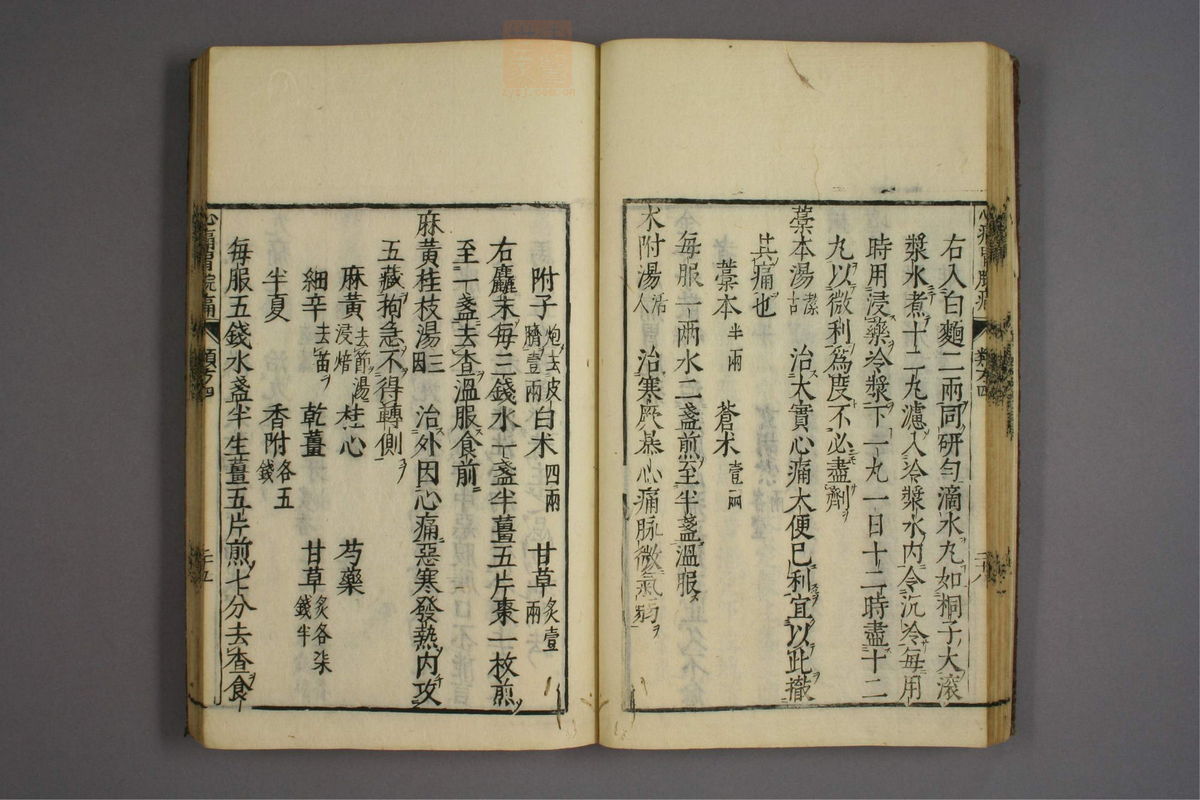 右入白麵二兩同研勻滴水丸如桐子大滾
漿水煮十二丸濾入冷漿水内令沉冷每用
時用浸藥冷漿下一丸一日十二時盡十二
丸以微利爲度不必盡劑
藁本湯潔古 治大實心痛大便已利宜以此撤
其痛也
藁本半兩 蒼朮壹兩
每服一兩水二盞煎至半盞溫服
朮附湯活人 治寒厥暴心痛脉微氣弱
附子炮去皮臍壹兩 白朮四兩 甘草炙壹兩
右麤末每三錢水一盞半薑五片棗一枚煎
至一盞去查溫服食前
麻黃桂枝湯三因 治外因心痛惡寒發熱内攻
五藏拘急不得轉側
麻黃去節湯浸焙 桂心 芍藥
細辛去苗 乾薑 甘草炙各柒錢半
半夏 香附各五錢
每服五錢水盞半生薑五片煎七分去查食